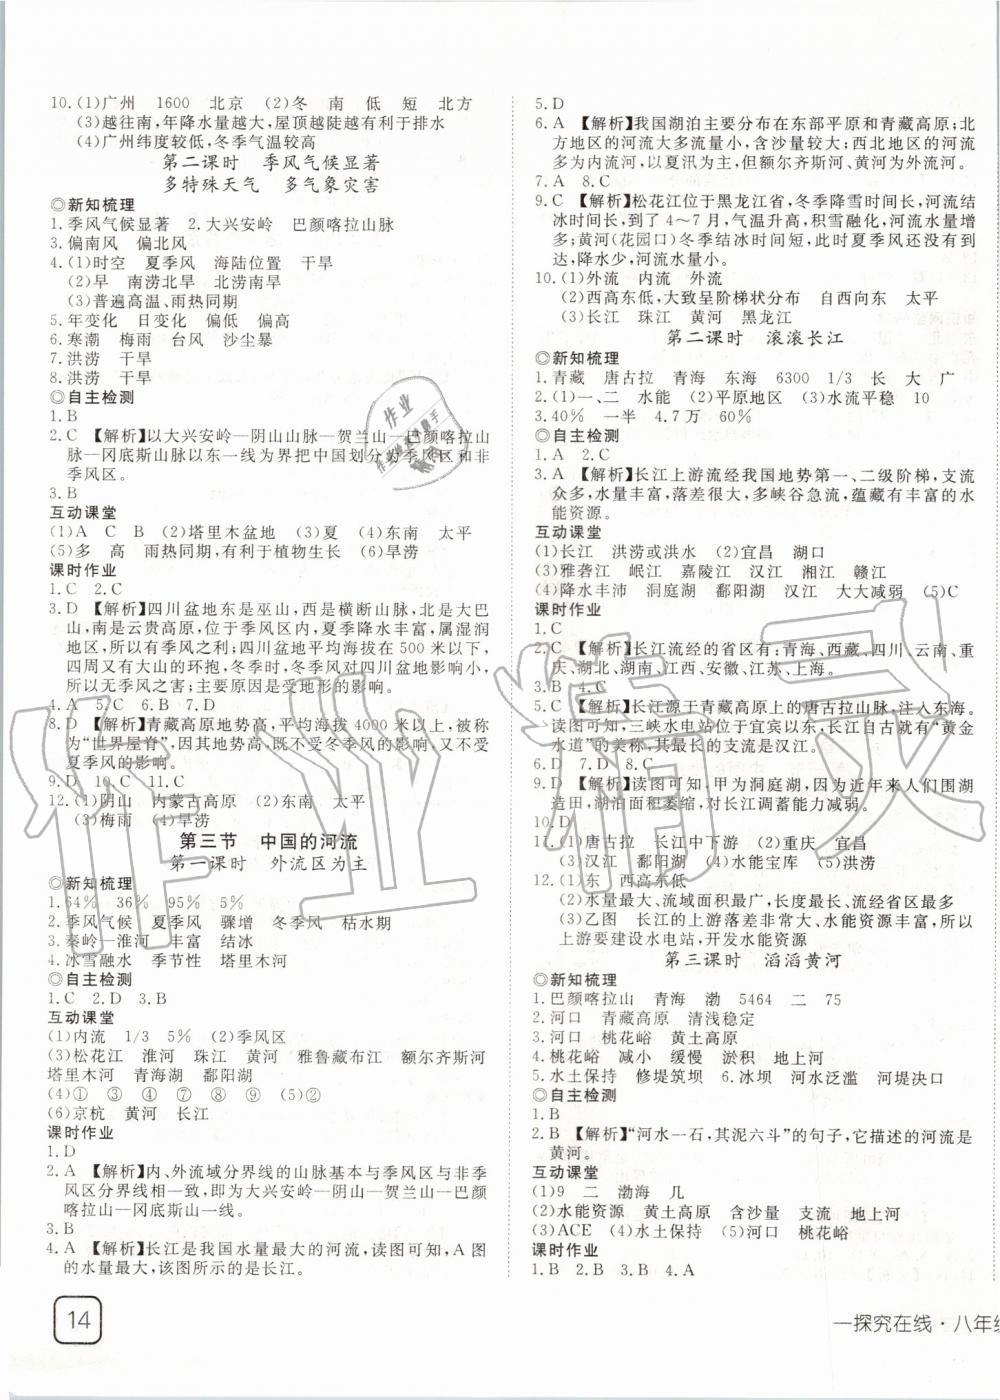 10.(1)广州 1600 北京 (2)冬 南 低 短 北方
(3)越往南,年降水量越大,屋顶越陡有利于排水
(4)广州纬度较低,冬季气温较高
第二课时 季风气候显著
多特殊天气 多气象灾害
◎新知梳理
1.季风气候显著 2.大兴安岭 巴颜喀拉山脉
3.偏南风 偏北风
4.(1)时空 夏季风 海陆位置 干旱
(2)早 南涝北旱 北涝南旱
(3)普遍高温、雨热同期
5.年变化 日变化 偏低 偏高
6.寒潮 梅雨 台风 沙尘暴
7.洪涝 干旱
8.洪涝 干旱
◎自主检测
1.B
2.C 【解析】以大兴安岭—阴山山脉—贺兰山—巴颜喀拉山
脉—冈底斯山脉以东一线为界把中国划分为季风区和非
季风区。
3.B
互动课堂
(1)A C B (2)塔里木盆地 (3)夏 (4)东南 太平
(5)多 高 雨热同期,有利于植物生长 (6)旱涝
课时作业
1.C 2.C
3.D 【解析】四川盆地东是巫山,西是横断山脉,北是大巴
山,南是云贵高原,位于季风区内,夏季降水丰富,属湿润
地区,所以有夏季风之利;四川盆地平均海拔在 500 米以下,
四周又有大山的环抱,冬季时,冬季风对四川盆地影响小,
所以无季风之害;这是受地形的影响。
4.A 5.C 6.B 7.D
8.D 【解析】青藏高原地势高,平均海拔 4000 米以上,被称
为“世界屋脊”,因其地势高,不受冬季风的影响,又不受
夏季风的影响。
9.D 10.C 11.C
12.(1)阴山 内蒙古高原 (2)东南 太平
(3)梅雨 (4)旱涝
第三节 中国的河流
第一课时 外流区为主
◎新知梳理
1.64% 36% 95% 5%
2.季风气候 夏季风 骤增 冬季风 枯水期
3.秦岭—淮河 丰富 结冰
4.冰雪融水 季节性 塔里木河
◎自主检测
1.C 2.D 3.B
互动课堂
(1)内流 1/3 5% (2)季风区
(3)松花江 淮河 珠江 黄河 雅鲁藏布江 额尔齐斯河
塔里木河 青海湖 鄱阳湖
(4)① ③ ④ ⑦ ⑧ ⑨ (5)②
(6)京杭 黄河 长江
课时作业
1.D
2.A 【解析】内、外流域分界线的山脉基本与季风区与非季
风区分界线相一致,即为大兴安岭—阴山—贺兰山—巴颜
喀拉山—冈底斯山一线。
3.B
4.A 【解析】长江是我国水量最大的河流,读图可知,A 图
的水量最大,该图所示的是长江。
14
5.D
6.A 【解析】我国湖泊主要分布在东部平原和青藏高原;北
方地区的河流大多流量小,含沙量较大;西北地区的河流
多为内流河,以夏汛为主,但额尔齐斯河、黄河为外流河。
7.A 8.C
9.C 【解析】松花江位于黑龙江省,冬季降雪时间长,河流结
冰时间长,到了 4～7 月,气温升高,积雪融化,河流水量增
多;黄河(花园口)冬季结冰时间短,此时夏季风仍还未到
达,降水少,河流水量小。
10.(1)外流 内流 外流
(2)西高东低,大致呈阶梯状分布 自西向东 太平
(3)长江 珠江 黄河 黑龙江
第二课时 滚滚长江
◎新知梳理
1.青藏 唐古拉 青海 东海 6300 1/3 长 大 广
2.(1)一、二 水能 (2)平原地区 (3)水流平稳 10
3.40% 一半 4.7万 60%
◎自主检测
1.A 2.C
3.A 【解析】长江上游流经我国地势第一、二级阶梯,支流
众多,水量丰富,落差很大,多峡谷急流,蕴藏有丰富的水
能资源。
互动课堂
(1)长江 洪涝或洪水 (2)宜昌 湖口
(3)雅砻江 岷江 嘉陵江 汉江 湘江 赣江
(4)降水丰沛 洞庭湖 鄱阳湖 汉江 大大减弱 (5)C
课时作业
1.C
2.C 【解析】长江流经的省区有:青海、西藏、四川、云南、重
庆、湖北、湖南、江西、安徽、江苏、上海。
3.B 4.C
5.C 【解析】长江源于青藏高原上的唐古拉山脉,注入东海。
读图可知,三峡水电站位于宜宾以东,长江自古就有“黄金
水道”的美称,其最长的支流是汉江。
6.D 7.D 8.D
9.D 【解析】读图可知,甲为洞庭湖,因为近年来人们围湖
造田,湖泊面积萎缩,对长江调蓄能力减弱。
10.D
11.(1)唐古拉 长江中下游 (2)重庆 宜昌
(3)汉江 鄱阳湖 (4)水能宝库 (5)洪涝
12.(1)东 西高东低
(2)水量最大、流域面积最广、长度最长、流经省区最多
(3)乙图 长江的上游落差非常大、水能资源丰富,所以
上游要建设水电站,开发水能资源
第三课时 滔滔黄河
◎新知梳理
1.巴颜喀拉山 青海 渤 5464 二 75
2.河口 青藏高原 清浅稳定
3.河口 桃花峪 黄土高原
4.桃花峪 减小 缓慢 淤积 地上河
5.水土保持 修堤筑坝 6.冰坝 河水泛滥 河堤决口
◎自主检测
1.B
2.B 【解析】“河水一石,其泥六斗”的句子,它描述的河流是
黄河。
互动课堂
(1)9 二 渤海 几
(2)水能资源 黄土高原 含沙量 支流 地上河
(3)ACE (4)水土保持 (5)河口 桃花峪
课时作业
1.B 2.B 3.B 4.A
一探究在线·八年级
作业精灵